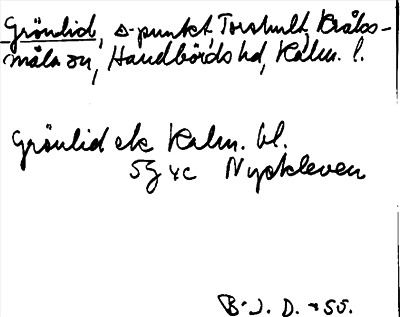 Grönlid, △-punkt, Torshult, Kråks-
måla sn, Handbörds hd, Kalm. l.
Grönlid ek Kalm. bl.
5G 4c Nyckleven
B. J. D. -55.